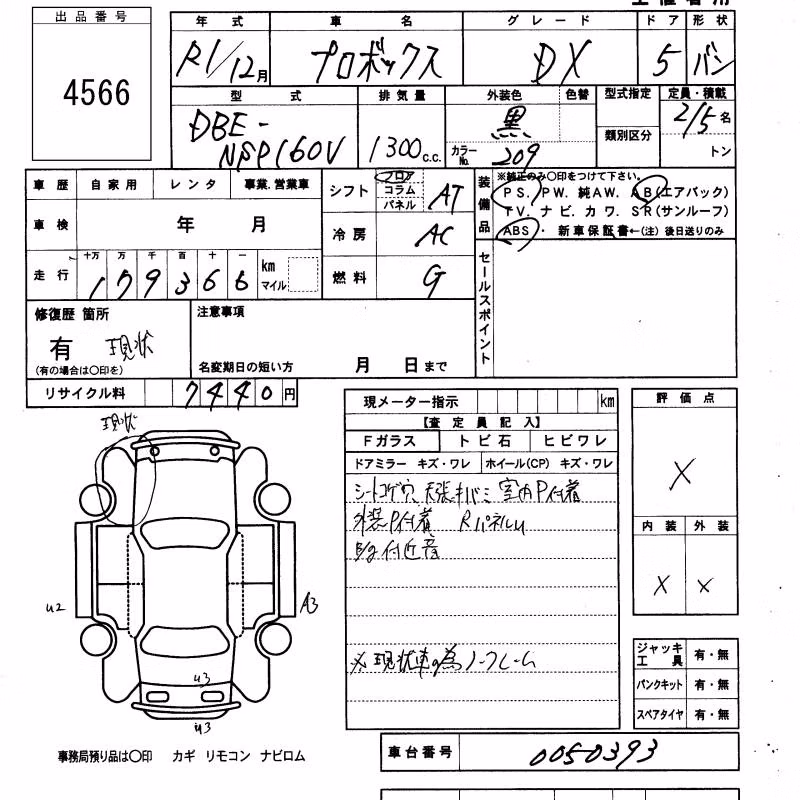 出品番号
4566
年式 車名 グレード ドア 形状
R1/12月 プロボックス DX 5 バン
型式 排気量 外装色 色替 型式指定 定員・積載
DBE-
NSP160V 1300c.c. 黒 2/5名
カラーNo. 209 類別区分 トン
車歴 自家用 レンタ 事業.営業車
車検 年 月
走行 十万 万 千 百 十 一
179366 km マイル
シフト フロア コラム パネル AT
冷房 AC
燃料 G
装備品
※純正のみ〇印をつけて下さい。
PS. PW. 純AW. AB(エアバック)
TV. ナビ. カワ. SR(サンルーフ)
ABS・ 新車保証書←(注)後日送りのみ
セールスポイント
修復歴 箇所
有 現状
(有の場合は〇印を)
注意事項
名変期日の短い方 月 日まで
リサイクル料 7440円
現メーター指示 km
【査定員記入】
Fガラス トビ石 ヒビワレ
ドアミラー キズ・ワレ ホイール(CP) キズ・ワレ
シートコゲ穴、天張キバミ 室内P付着
外装P付着 RパネルU
E/g付近音
※現状車の為ノークレーム
評価点
X
内装 外装
X X
ジャッキ工具 有・無
パンクキット 有・無
スペアタイヤ 有・無
現状
U2
A3
U3
U3
事務局預り品は〇印 カギ リモコン ナビロム
車台番号 0050393